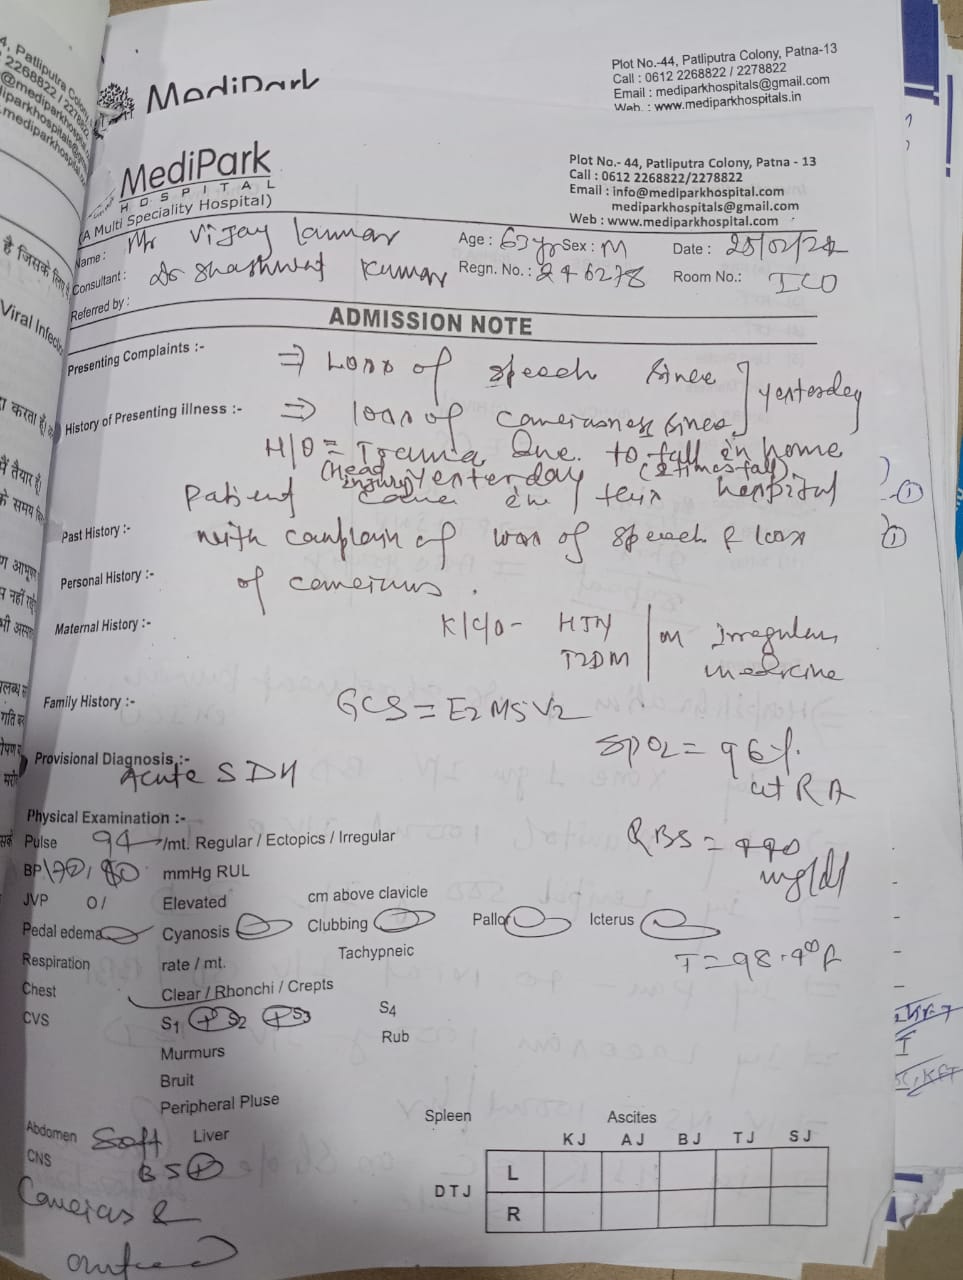 MediPark
Plot No.-44, Patliputra Colony, Patna-13
Call : 0612 2268822 / 2278822
Email : mediparkhospitals@gmail.com
Web. : www.mediparkhospitals.in
MediPark
HOSPITAL
(A Multi Speciality Hospital)
Plot No.- 44, Patliputra Colony, Patna - 13
Call : 0612 2268822/2278822
Email : info@mediparkhospital.com
mediparkhospitals@gmail.com
Web : www.mediparkhospital.com
Name : Mr Vijay Age : 63 yr Sex : M Date :
Consultant : Dr Shashwat Kumar Regn. No. : 246278 Room No.: ICU
Referred by :
ADMISSION NOTE
Presenting Complaints :- ⇒ Loss of speech since
yesterday
History of Presenting illness :- ⇒ loss of since
H/O = Trauma Due to fall in home
(Head injury) yesterday (2 times fall)
Patient in hospital
Past History :- with of loss of speech & loss
Personal History :- of
Maternal History :- K/C/O - HTN
T2DM on irregular
medicine
Family History :- GCS = E2 M5 V2
SPO2 = 96%
at RA
Provisional Diagnosis :-
Acute SDH
Physical Examination :-
Pulse 94 /mt. Regular / Ectopics / Irregular
RBS =
mg/dl
BP mmHg RUL
JVP Elevated cm above clavicle
Pedal edema Cyanosis Clubbing Pallor Icterus
Respiration rate / mt. Tachypneic
T = 98.4°F
Chest Clear / Rhonchi / Crepts
CVS S1 + S2 + S3 S4
Murmurs Rub
Bruit
Peripheral Pluse
Abdomen Soft Liver Spleen Ascites
BS +
CNS
KJ AJ BJ TJ SJ
DTJ L
R